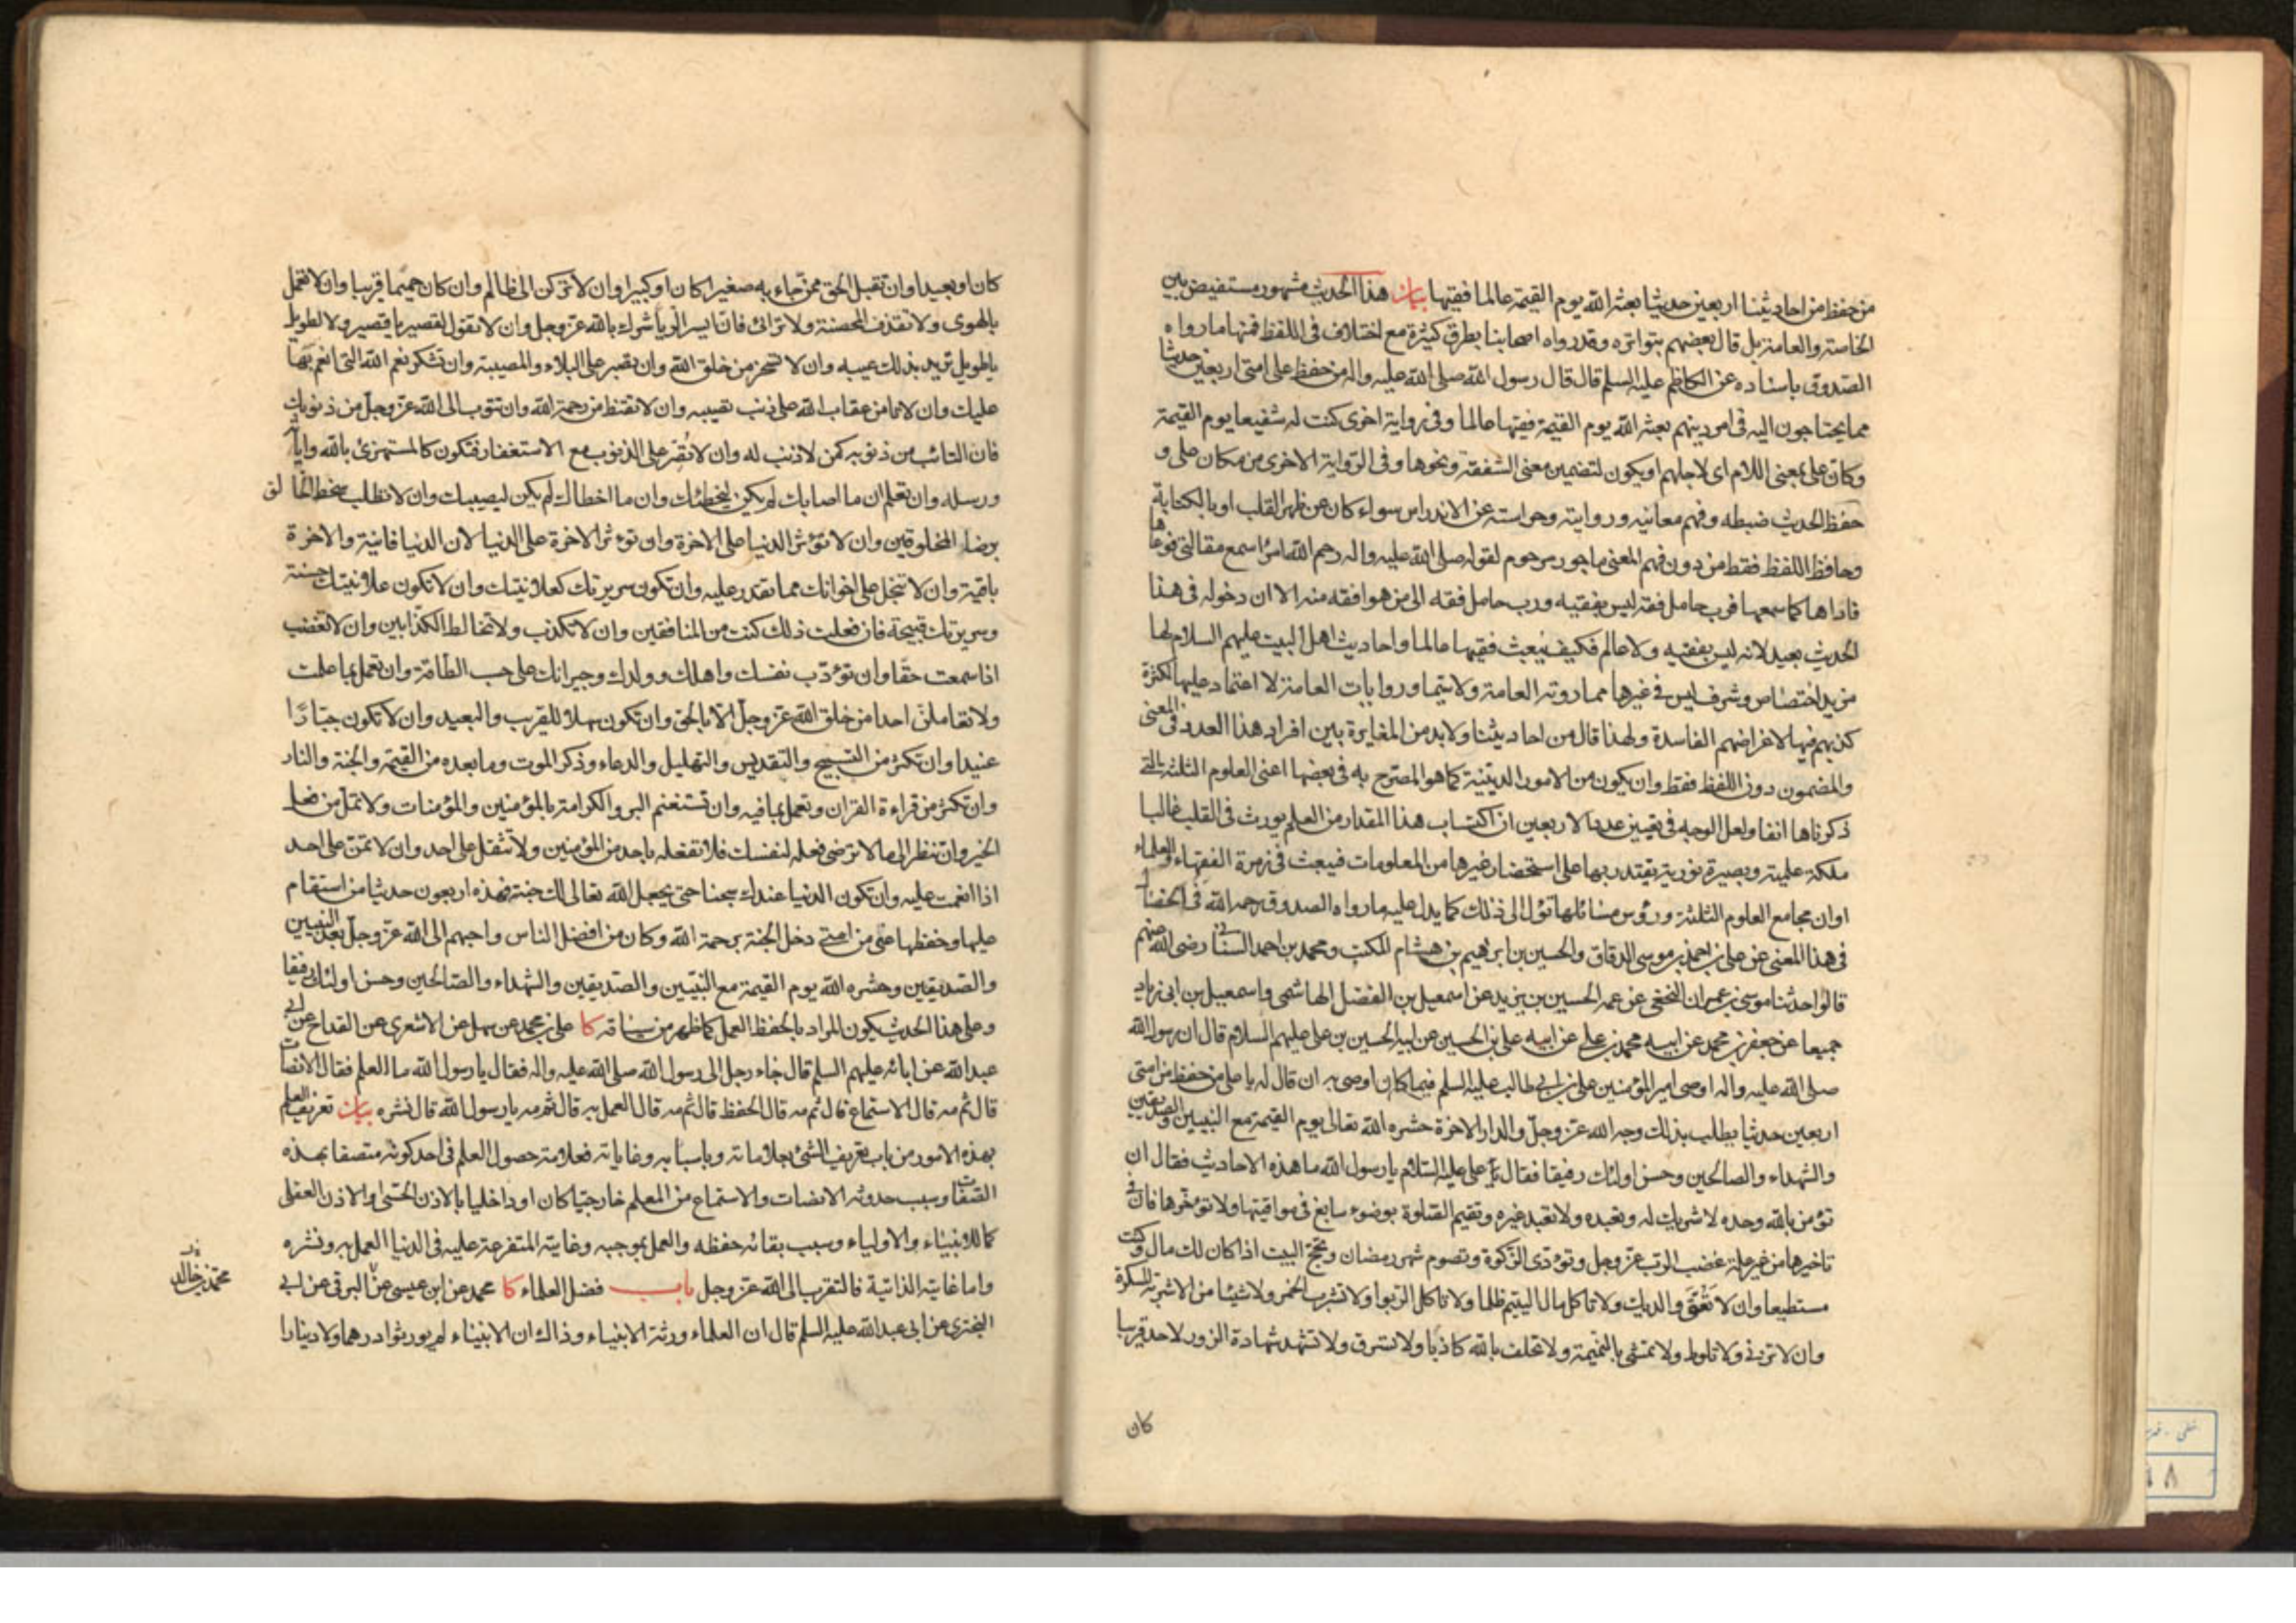 من حفظ من احاديثنا اربعين حديثا بعثه الله يوم القيمة عالما فقيها بيان هذا الحديث مشهور مستفيض بين
الخاصة والعامة بل قال بعضهم بتواتره وقد رواه اصحابنا بطرق كثيرة مع اختلاف فى اللفظ فمنها ما رواه
الصدوق باسناده عن الكاظم عليه السلم قال قال رسول الله صلى الله عليه واله من حفظ على امتى اربعين حديثا
مما يحتاجون اليه فى امر دينهم بعثه الله يوم القيمة فقيها عالما وفى رواية اخرى كنت له شفيعا يوم القيمة
وكان على بمعنى اللام اى لاجلهم او يكون لتضمين معنى الشفقة ونحوها وفى الرواية الاخرى من مكان على و
حفظ الحديث ضبطه وفهم معانيه وروايته وحراسته عن الاندراس سواء كان عن ظهر القلب او بالكتابة
وحافظ اللفظ فقط من دون فهم المعنى ماجور مرحوم لقوله صلى الله عليه واله رحم الله امرا سمع مقالتى فوعاها
فاداها كما سمعها فرب حامل فقه ليس بفقيه ورب حامل فقه الى من هو افقه منه الا ان دخوله فى هذا
الحديث بعيد لانه ليس بفقيه ولا عالم فكيف يبعث فقيها عالما واحاديث اهل البيت عليهم السلام لها
مزيد اختصاص وشرف ليس فى غيرها مما روته العامة ولا سيما وروايات العامة لا اعتماد عليها لكثرة
كذبهم فيها لاغراضهم الفاسدة ولهذا قال من احاديثنا ولا بد من المغايرة بين افراد هذا العدد فى المعنى
والمضمون دون اللفظ فقط وان يكون من الامور الدينية كما هو المصرح به فى بعضها اعنى العلوم الثلثة التى
ذكرناها انفا ولعل الوجه فى تعيين عدد الاربعين ان اكتساب هذا المقدار من العلم يورث فى القلب غالبا
ملكة علمية وبصيرة نورية يقتدر بها على استحضار غيرها من المعلومات فيبعث فى زمرة الفقهاء والعلماء
او ان مجامع العلوم الثلثة ورؤس مسائلها تؤل الى ذلك كما يدل عليه ما رواه الصدوق رحمه الله فى الخصال
فى هذا المعنى عن على بن احمد بن موسى الدقاق والحسين بن ابرهيم بن هشام المكتب ومحمد بن احمد السنانى رضى الله عنهم
قالوا حدثنا موسى بن عمران النخعى عن عمه الحسين بن يزيد عن اسمعيل بن الفضل الهاشمى واسمعيل بن ابى زياد
جميعا عن جعفر بن محمد عن ابيه محمد بن على عن ابيه على بن الحسين عن ابيه الحسين بن على عليهم السلام قال ان رسول الله
صلى الله عليه واله اوصى امير المؤمنين على بن ابى طالب عليه السلم فيما كان اوصى به ان قال له يا على من حفظ من امتى
اربعين حديثا يطلب بذلك وجه الله عز وجل والدار الاخرة حشره الله تعالى يوم القيمة مع النبيين والصديقين
والشهداء والصالحين وحسن اولئك رفيقا فقال على عليه السلام يا رسول الله ما هذه الاحاديث فقال ان
تؤمن بالله وحده لا شريك له وتعبده ولا تعبد غيره وتقيم الصلوة بوضوء سابغ فى مواقيتها ولا تؤخرها فان فى
تاخيرها من غير علة غضب الرب عز وجل وتؤدى الزكوة وتصوم شهر رمضان وتحج البيت اذا كان لك مال وكنت
مستطيعا وان لا تعق والديك ولا تاكل مال اليتيم ظلما ولا تاكل الربوا ولا تشرب الخمر ولا شيئا من الاشربة المسكرة
وان لا تزنى ولا تلوط ولا تمشى بالنميمة ولا تحلف بالله كاذبا ولا تسرق ولا تشهد شهادة الزور لاحد قريبا
كان
كان او بعيدا وان تقبل الحق ممن جاء به صغيرا كان او كبيرا وان لا تركن الى ظالم وان كان حميما قريبا وان لا تعمل
بالهوى ولا تقذف المحصنة ولا ترائى فان ايسر الريا شرك بالله عز وجل وان لا تقول لقصير يا قصير ولا لطويل
يا طويل تريد بذلك عيبه وان لا تسخر من خلق الله وان تصبر على البلاء والمصيبة وان تشكر نعم الله التى انعم بها
عليك وان لا تامن عقاب الله على ذنب تصيبه وان لا تقنط من رحمة الله وان تتوب الى الله عز وجل من ذنوبك
فان التائب من ذنوبه كمن لا ذنب له وان لا تصر على الذنوب مع الاستغفار فتكون كالمستهزئ بالله واياته
ورسله وان تعلم ان ما اصابك لم يكن ليخطئك وان ما اخطاك لم يكن ليصيبك وان لا تطلب سخط الخالق
برضا المخلوقين وان لا تؤثر الدنيا على الاخرة وان تؤثر الاخرة على الدنيا لان الدنيا فانية والاخرة
باقية وان لا تبخل على اخوانك مما تقدر عليه وان تكون سريرتك كعلانيتك وان لا تكون علانيتك حسنة
وسريرتك قبيحة فان فعلت ذلك كنت من المنافقين وان لا تكذب ولا تخالط الكذابين وان لا تغضب
اذا سمعت حقا وان تؤدب نفسك واهلك وولدك وجيرانك على حسب الطاقة وان تعمل بما علمت
ولا تعاملن احدا من خلق الله عز وجل الا بالحق وان تكون سهلا للقريب والبعيد وان لا تكون جبارا
عنيدا وان تكثر من التسبيح والتقديس والتهليل والدعاء وذكر الموت وما بعده من القيمة والجنة والنار
وان تكثر من قراءة القران وتعمل بما فيه وان تستغنم البر والكرامة بالمؤمنين والمؤمنات ولا تمل من فعل
الخير وان تنظر الى ما لا ترضى فعله لنفسك فلا تفعله باحد من المؤمنين ولا تثقل على احد وان لا تمن على احد
اذا انعمت عليه وان تكون الدنيا عندك سجنا حتى يجعل الله تعالى لك جنة فهذه اربعون حديثا من استقام
عليها وحفظها عنى من امتى دخل الجنة برحمة الله وكان من افضل الناس واحبهم الى الله عز وجل بعد النبيين
والصديقين وحشره الله يوم القيمة مع النبيين والصديقين والشهداء والصالحين وحسن اولئك رفيقا
وعلى هذا الحديث يكون المراد بالحفظ العمل كما ظهر من سياقه كا على بن محمد عن سهل عن الاشعرى عن القداح عن ابى
عبد الله عن ابائه عليهم السلم قال جاء رجل الى رسول الله صلى الله عليه واله فقال يا رسول الله ما العلم فقال الانصات
قال ثم مه قال الاستماع قال ثم مه قال الحفظ قال ثم مه قال العمل به قال ثم مه يا رسول الله قال نشره بيان تعريف العلم
بهذه الامور من باب تعريف الشئ بعلاماته وباسبابه وغاياته فعلامة حصول العلم فى احد كونه متصفا بهذه
الصفات وسبب حدوثه الانصات والاستماع من المعلم خارجيا كان او داخليا بالاذن الحسى او الاذن العقلى
كما للانبياء والاولياء وسبب بقائه حفظه والعمل بموجبه وغايته المتفرعة عليه فى الدنيا العمل به ونشره
واما غايته الذاتية فالتقرب الى الله عز وجل باب فضل العلماء كا محمد عن ابن عيسى عن البرقى عن ابى
البخترى عن ابى عبد الله عليه السلم قال ان العلماء ورثة الانبياء وذاك ان الانبياء لم يورثوا درهما ولا دينارا
محمد بن خالد